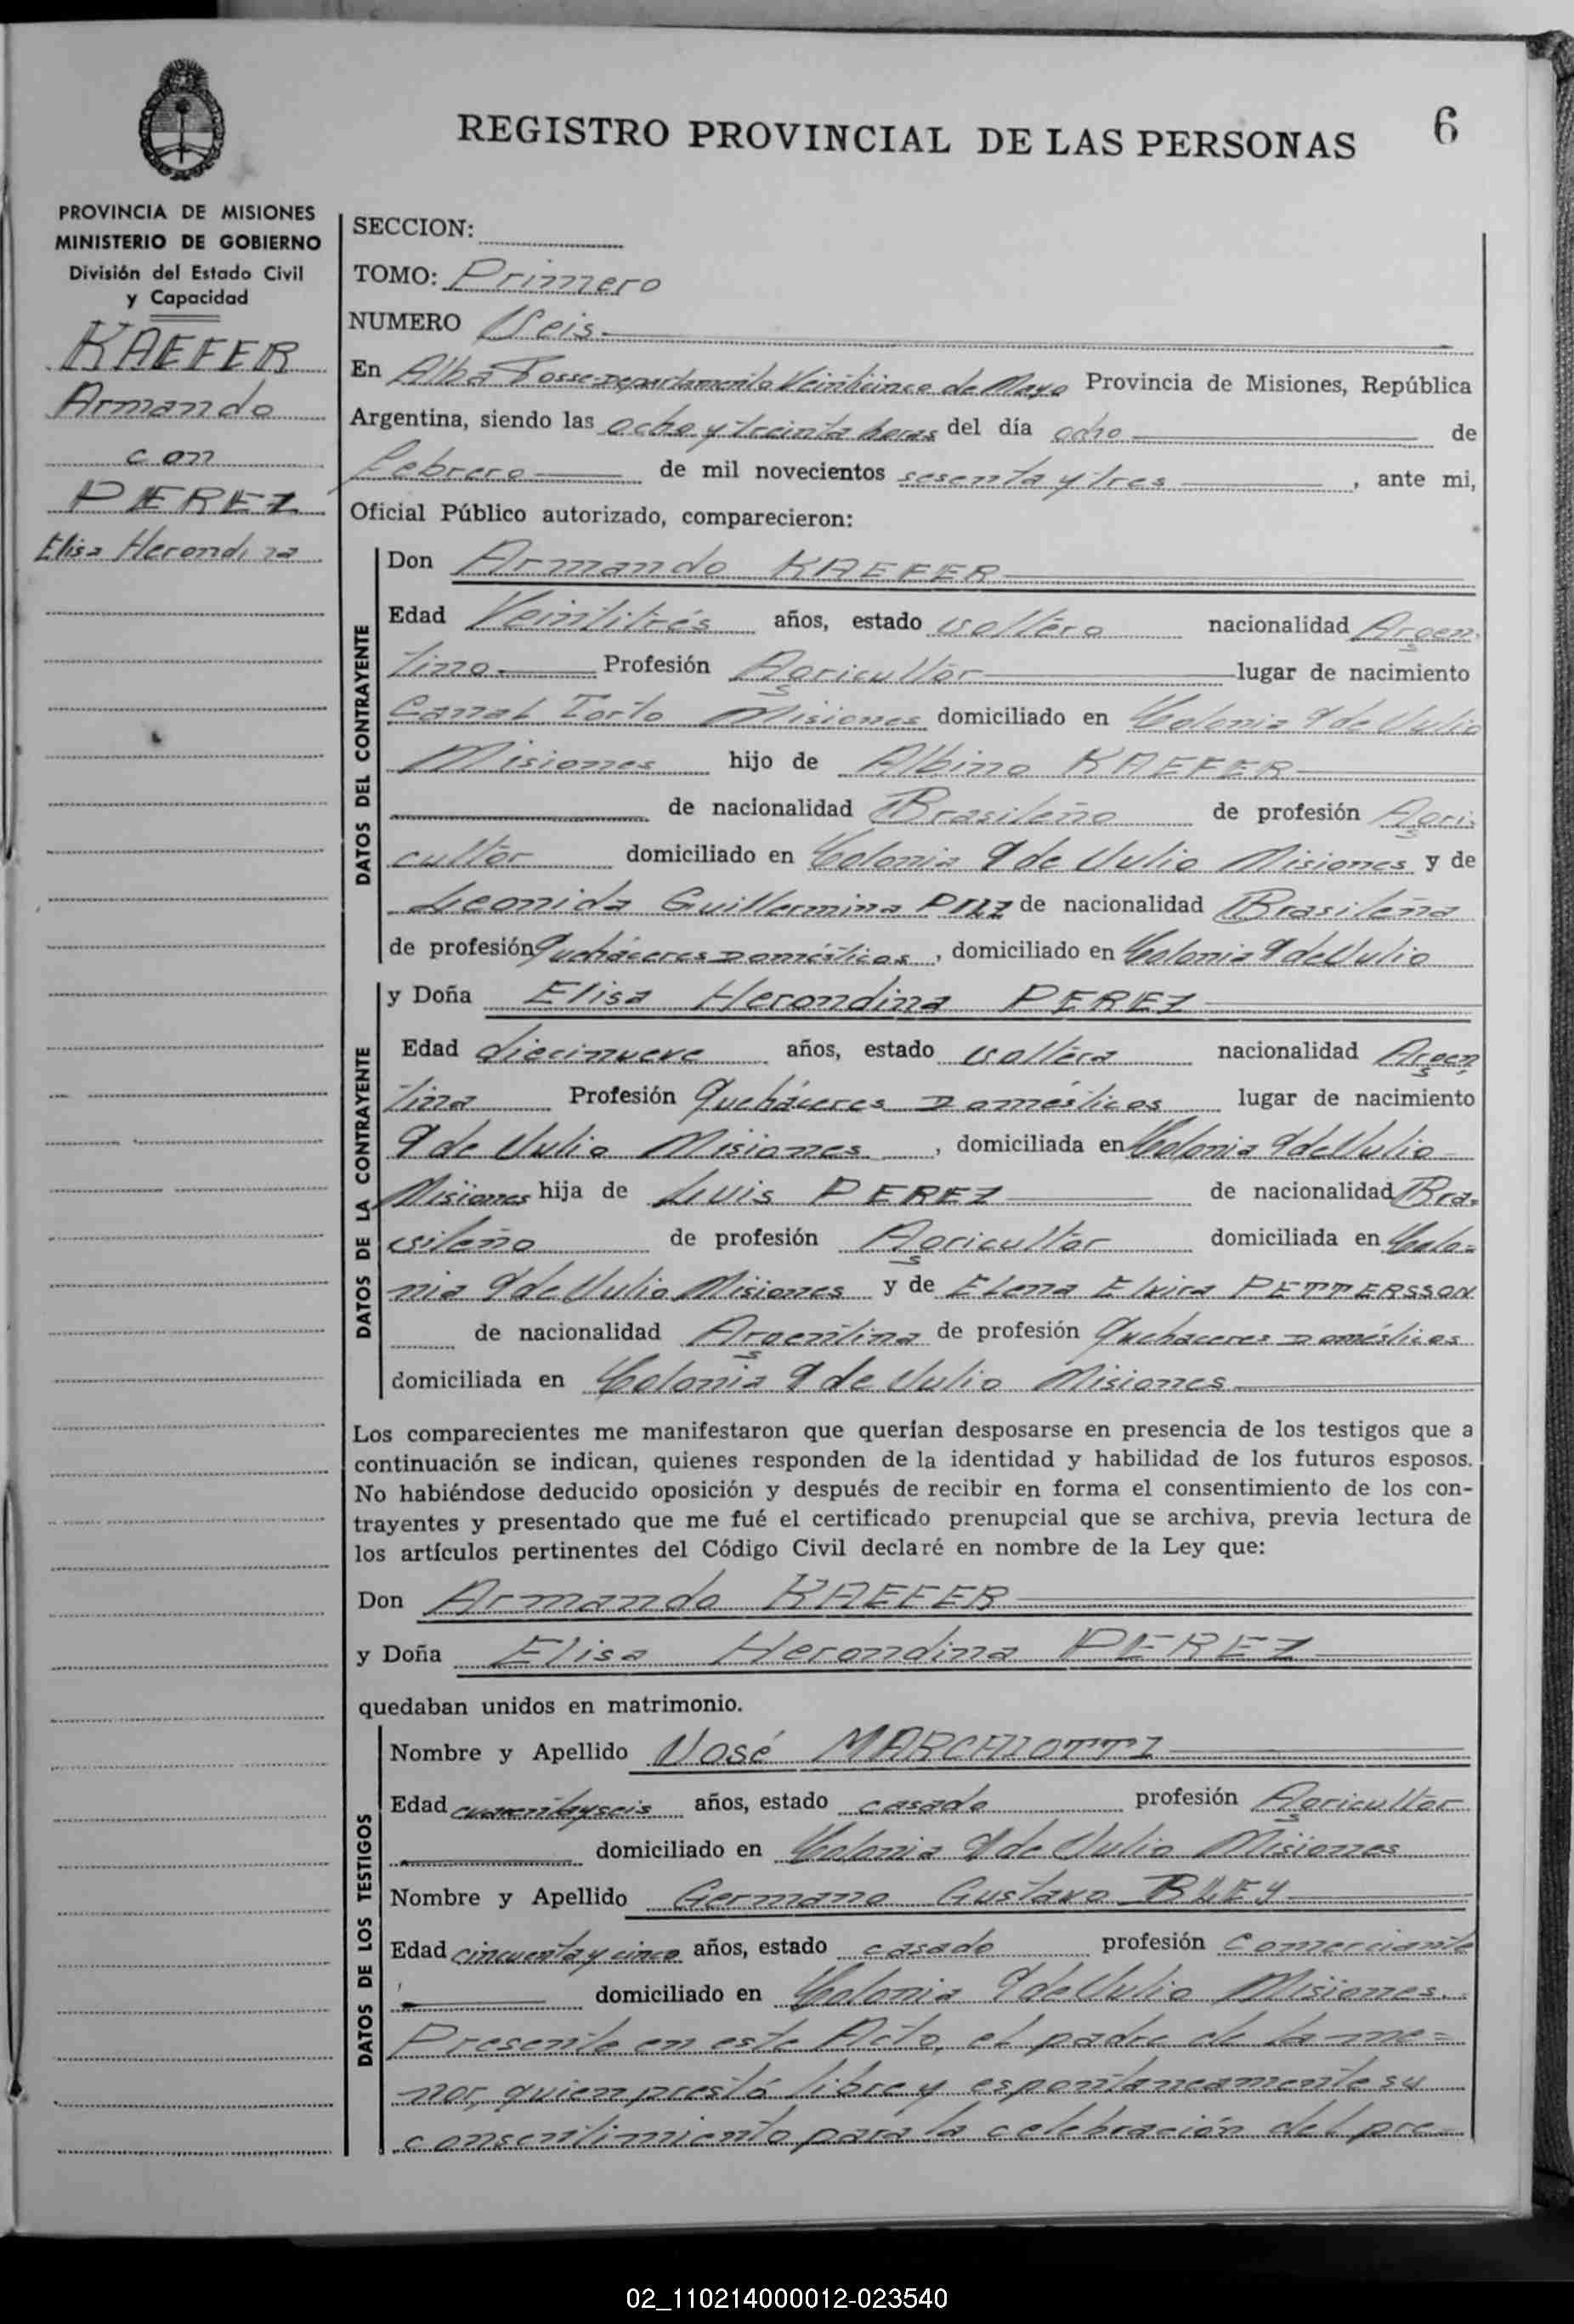 REGISTRO PROVINCIAL DE LAS PERSONAS
6
PROVINCIA DE MISIONES
MINISTERIO DE GOBIERNO
División del Estado Civil
y Capacidad
KAEFER
Armando
con
PEREZ
Elisa Herondina
SECCION:
TOMO: Primero
NUMERO Seis
En Alba Posse Departamento Veinticinco de Mayo Provincia de Misiones, República
Argentina, siendo las ocho y treinta horas del día ocho de
febrero de mil novecientos sesenta y tres, ante mi,
Oficial Público autorizado, comparecieron:
DATOS DEL CONTRAYENTE
Don Armando KAEFER
Edad Veintitrés años, estado soltero nacionalidad Argen
tino Profesión Agricultor lugar de nacimiento
Canal Torto Misiones domiciliado en Colonia 9 de Julio
Misiones hijo de Albino KAEFER
de nacionalidad Brasileño de profesión Agri-
cultor domiciliado en Colonia 9 de Julio Misiones y de
Leonida Guillermina PILZ de nacionalidad Brasileña
de profesión Quehaceres Domésticos, domiciliado en Colonia 9 de Julio
DATOS DE LA CONTRAYENTE
y Doña Elisa Herondina PEREZ
Edad diecinueve años, estado soltera nacionalidad Argen
tina Profesión Quehaceres Domésticos lugar de nacimiento
9 de Julio Misiones, domiciliada en Colonia 9 de Julio
Misiones hija de Luis PEREZ de nacionalidad Bra-
sileño de profesión Agricultor domiciliada en Colo-
nia 9 de Julio Misiones y de Elena Elvira PETTERSSON
de nacionalidad Argentina de profesión Quehaceres Domésticos
domiciliada en Colonia 9 de Julio Misiones
Los comparecientes me manifestaron que querían desposarse en presencia de los testigos que a
continuación se indican, quienes responden de la identidad y habilidad de los futuros esposos.
No habiéndose deducido oposición y después de recibir en forma el consentimiento de los con-
trayentes y presentado que me fué el certificado prenupcial que se archiva, previa lectura de
los artículos pertinentes del Código Civil declaré en nombre de la Ley que:
Don Armando KAEFER
y Doña Elisa Herondina PEREZ
quedaban unidos en matrimonio.
DATOS DE LOS TESTIGOS
Nombre y Apellido José MARCHIOTTI
Edad cuarenta y seis años, estado casado profesión Agricultor
domiciliado en Colonia 9 de Julio Misiones
Nombre y Apellido Germano Gustavo BLEY
Edad cincuenta y cinco años, estado casado profesión Comerciante
domiciliado en Colonia 9 de Julio Misiones.
Presente en este Acto, el padre de la me=
nor, quien prestó libre y espontaneamente su
consentimiento para la celebración del pre
02_110214000012-023540